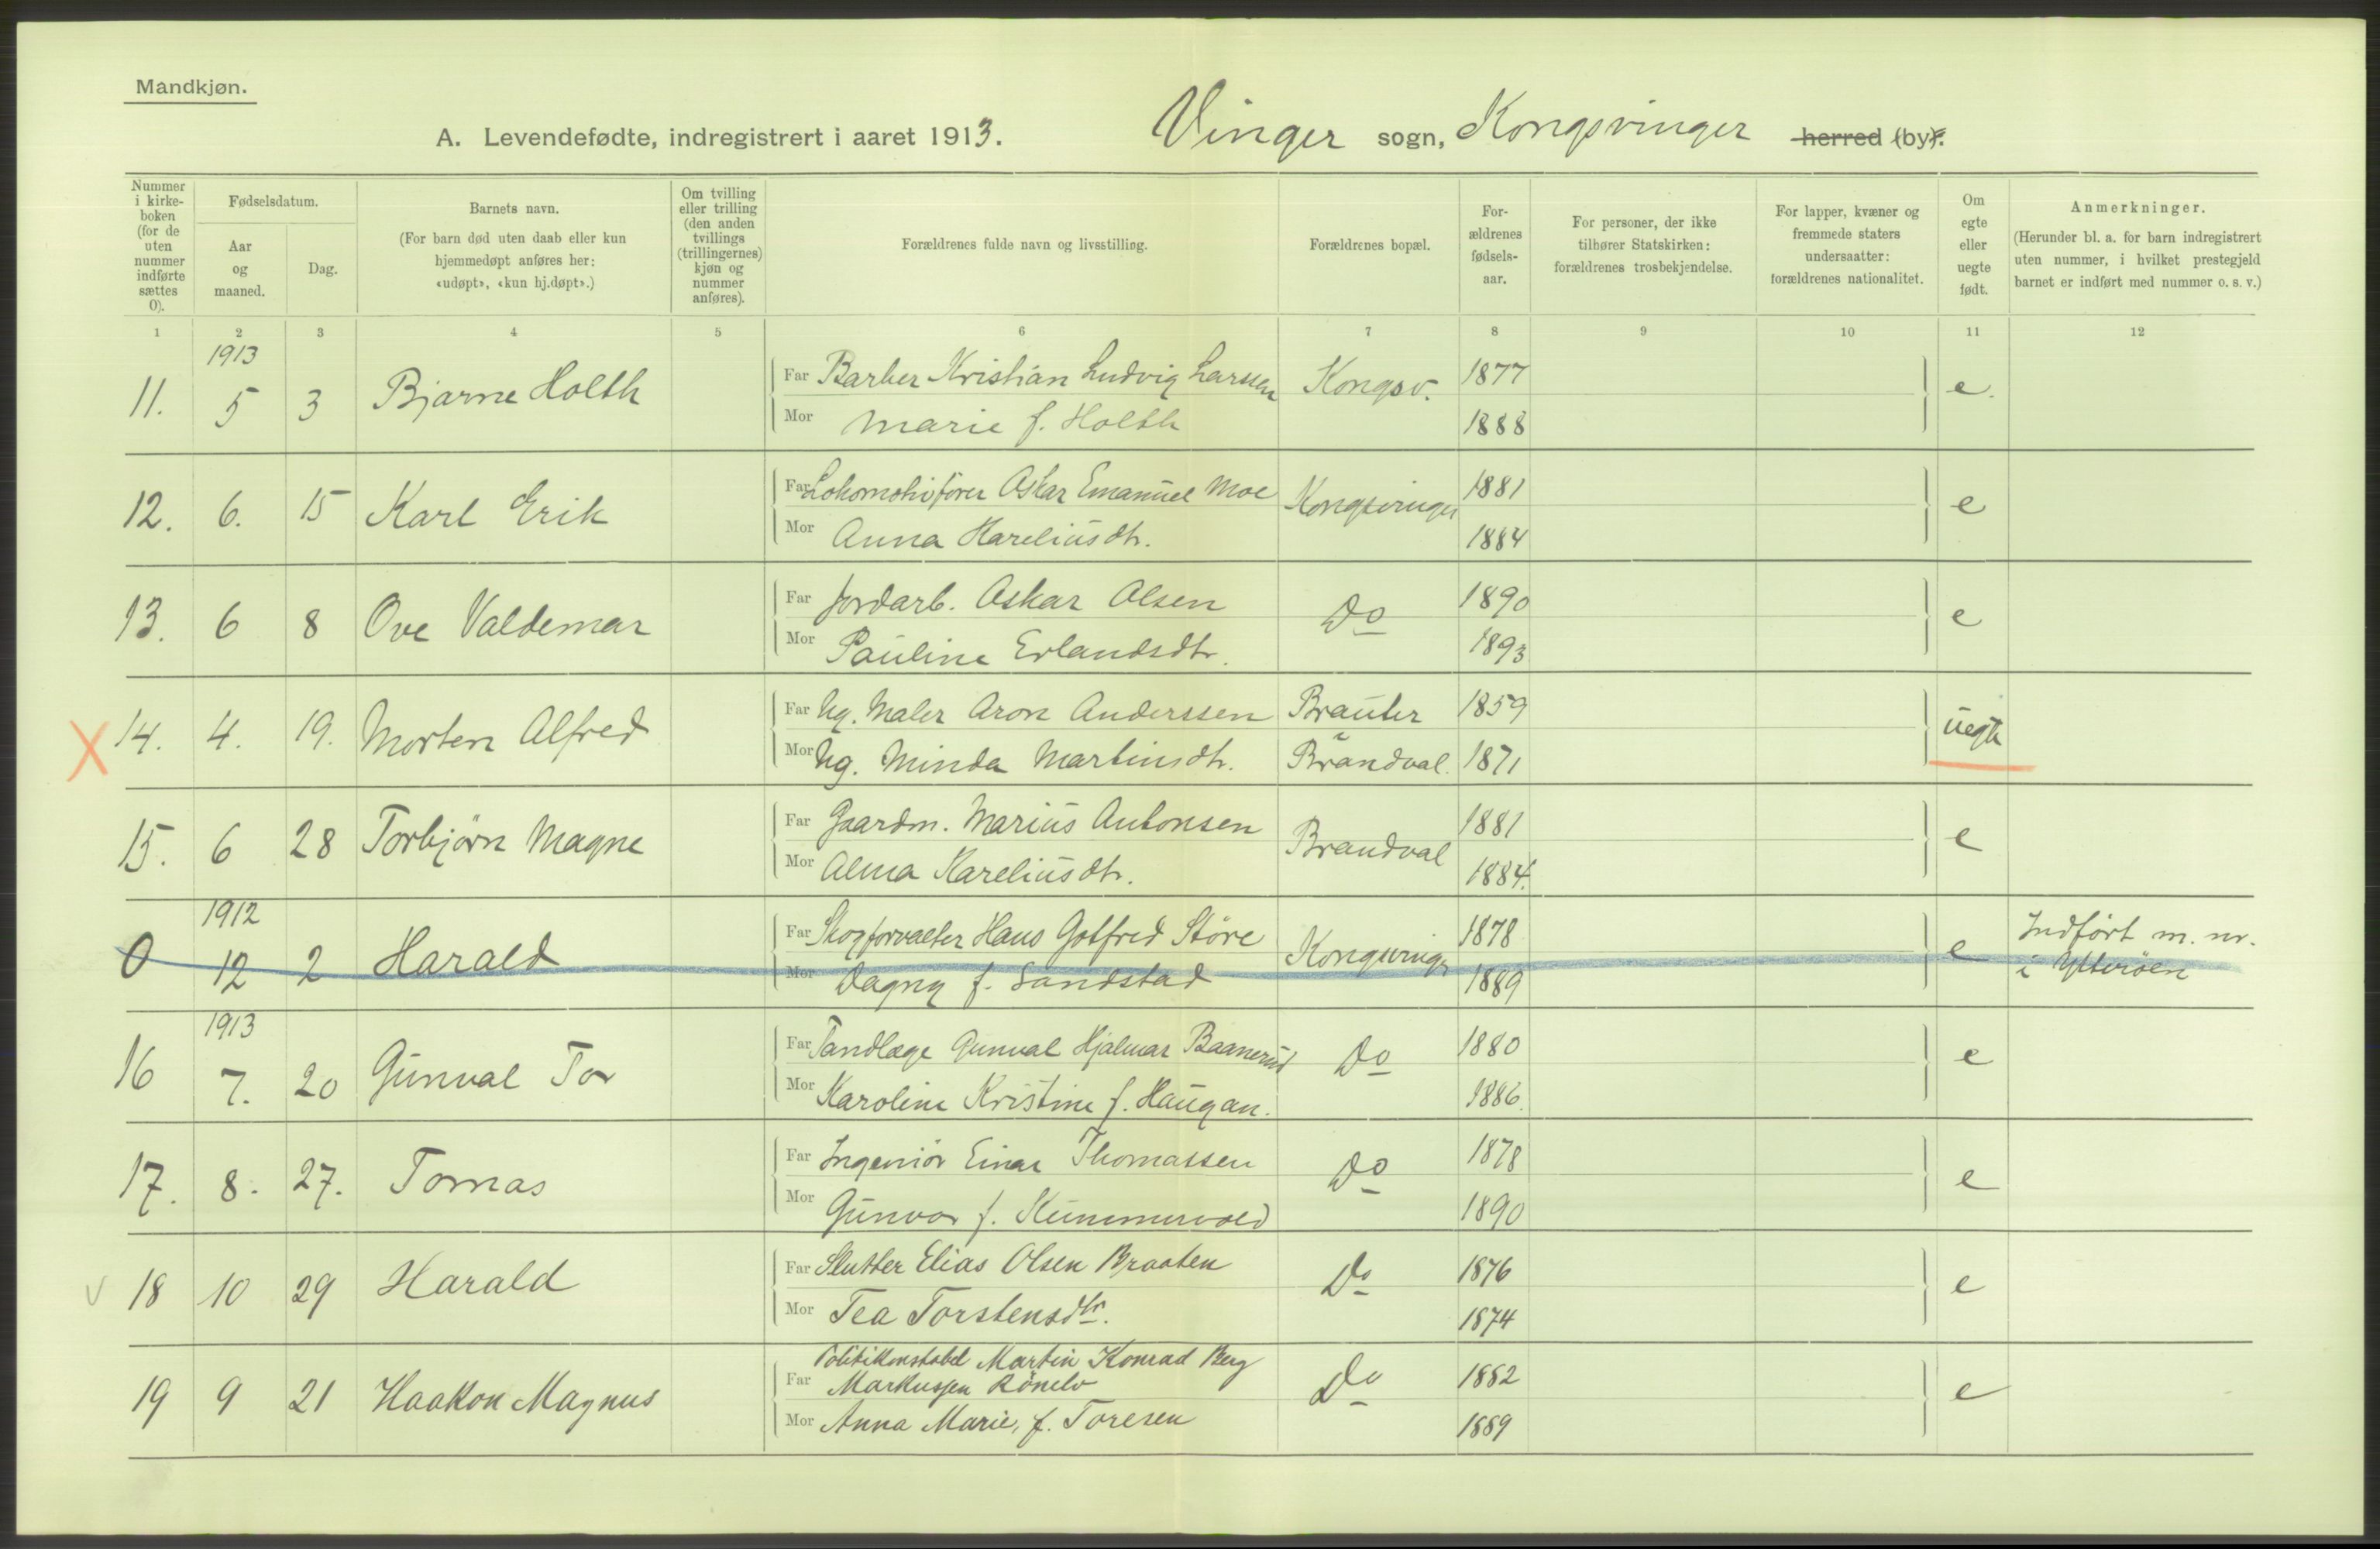 Mandkjøn.
A. Levendefødte, indregistrert i aaret 1913. Vinger sogn, Kongsvinger herred (by).
Nummer i kirkeboken (for de uten nummer indførte sættes 0).
Fødselsdatum.
Aar og maaned.
Dag.
Barnets navn.
(For barn død uten daab eller kun hjemmedøpt anføres her: «udøpt», «kun hj.døpt».)
Om tvilling eller trilling (den anden tvillings (trillingernes) kjøn og nummer anføres).
Forældrenes fulde navn og livsstilling.
Forældrenes bopæl.
Forældrenes fødselsaar.
For personer, der ikke tilhører Statskirken: forældrenes trosbekjendelse.
For lapper, kvæner og fremmede staters undersaatter: forældrenes nationalitet.
Om egte eller uegte født.
Anmerkninger.
(Herunder bl. a. for barn indregistrert uten nummer, i hvilket prestegjeld barnet er indført med nummer o. s. v.)
1 2 3 4 5 6 7 8 9 10 11 12
1913
11. 5 3 Bjarne Holth Far Barber Kristian Ludvig Larssen Kongsv. 1877 e.
Mor Marie f. Holth 1888
12. 6. 15 Karl Erik Far Lokomotivfører Oskar Emanuel Moe Kongsvinger 1881 e
Mor Anna Kareliusdtr. 1884
13. 6 8 Ove Valdemar Far Jordarb. Oskar Olsen Do 1890 e
Mor Pauline Erlandsdtr. 1893
X 14. 4. 19. Morten Alfred Far Ug. Maler Aron Anderssen Brauter 1859 uegte
Mor Ug. Minda Martinsdtr. Brandval. 1871
15. 6 28 Torbjørn Magne Far Gaardm. Marius Antonsen Brandval 1881 e
Mor Alma Kareliusdtr. 1884.
1912
0 12 2 Harald Far Skogforvalter Hans Gotfred Störe Kongsvinger 1878 e Indført m. nr.
Mor Dagny f. Sandstad 1889 i Ytterøen
1913
16 7. 20 Gunval Tor Far Tandlæge Gunval Hjalmar Baanerud Do 1880 e
Mor Karoline Kristine f. Haugan. 1886.
17. 8. 27. Tomas Far Ingeniör Einar Thomassen Do 1878 e
Mor Gunvor f. Kummervold 1890
v 18 10 29 Harald Far Slutter Elias Olsen Braaten Do 1876 e
Mor Tea Torstensdtr. 1874
Politikonstabel Martin Konrad Berg
19 9 21 Haakon Magnus Far Markussen Rönelv Do 1882 e
Mor Anna Marie, f. Toresen 1889